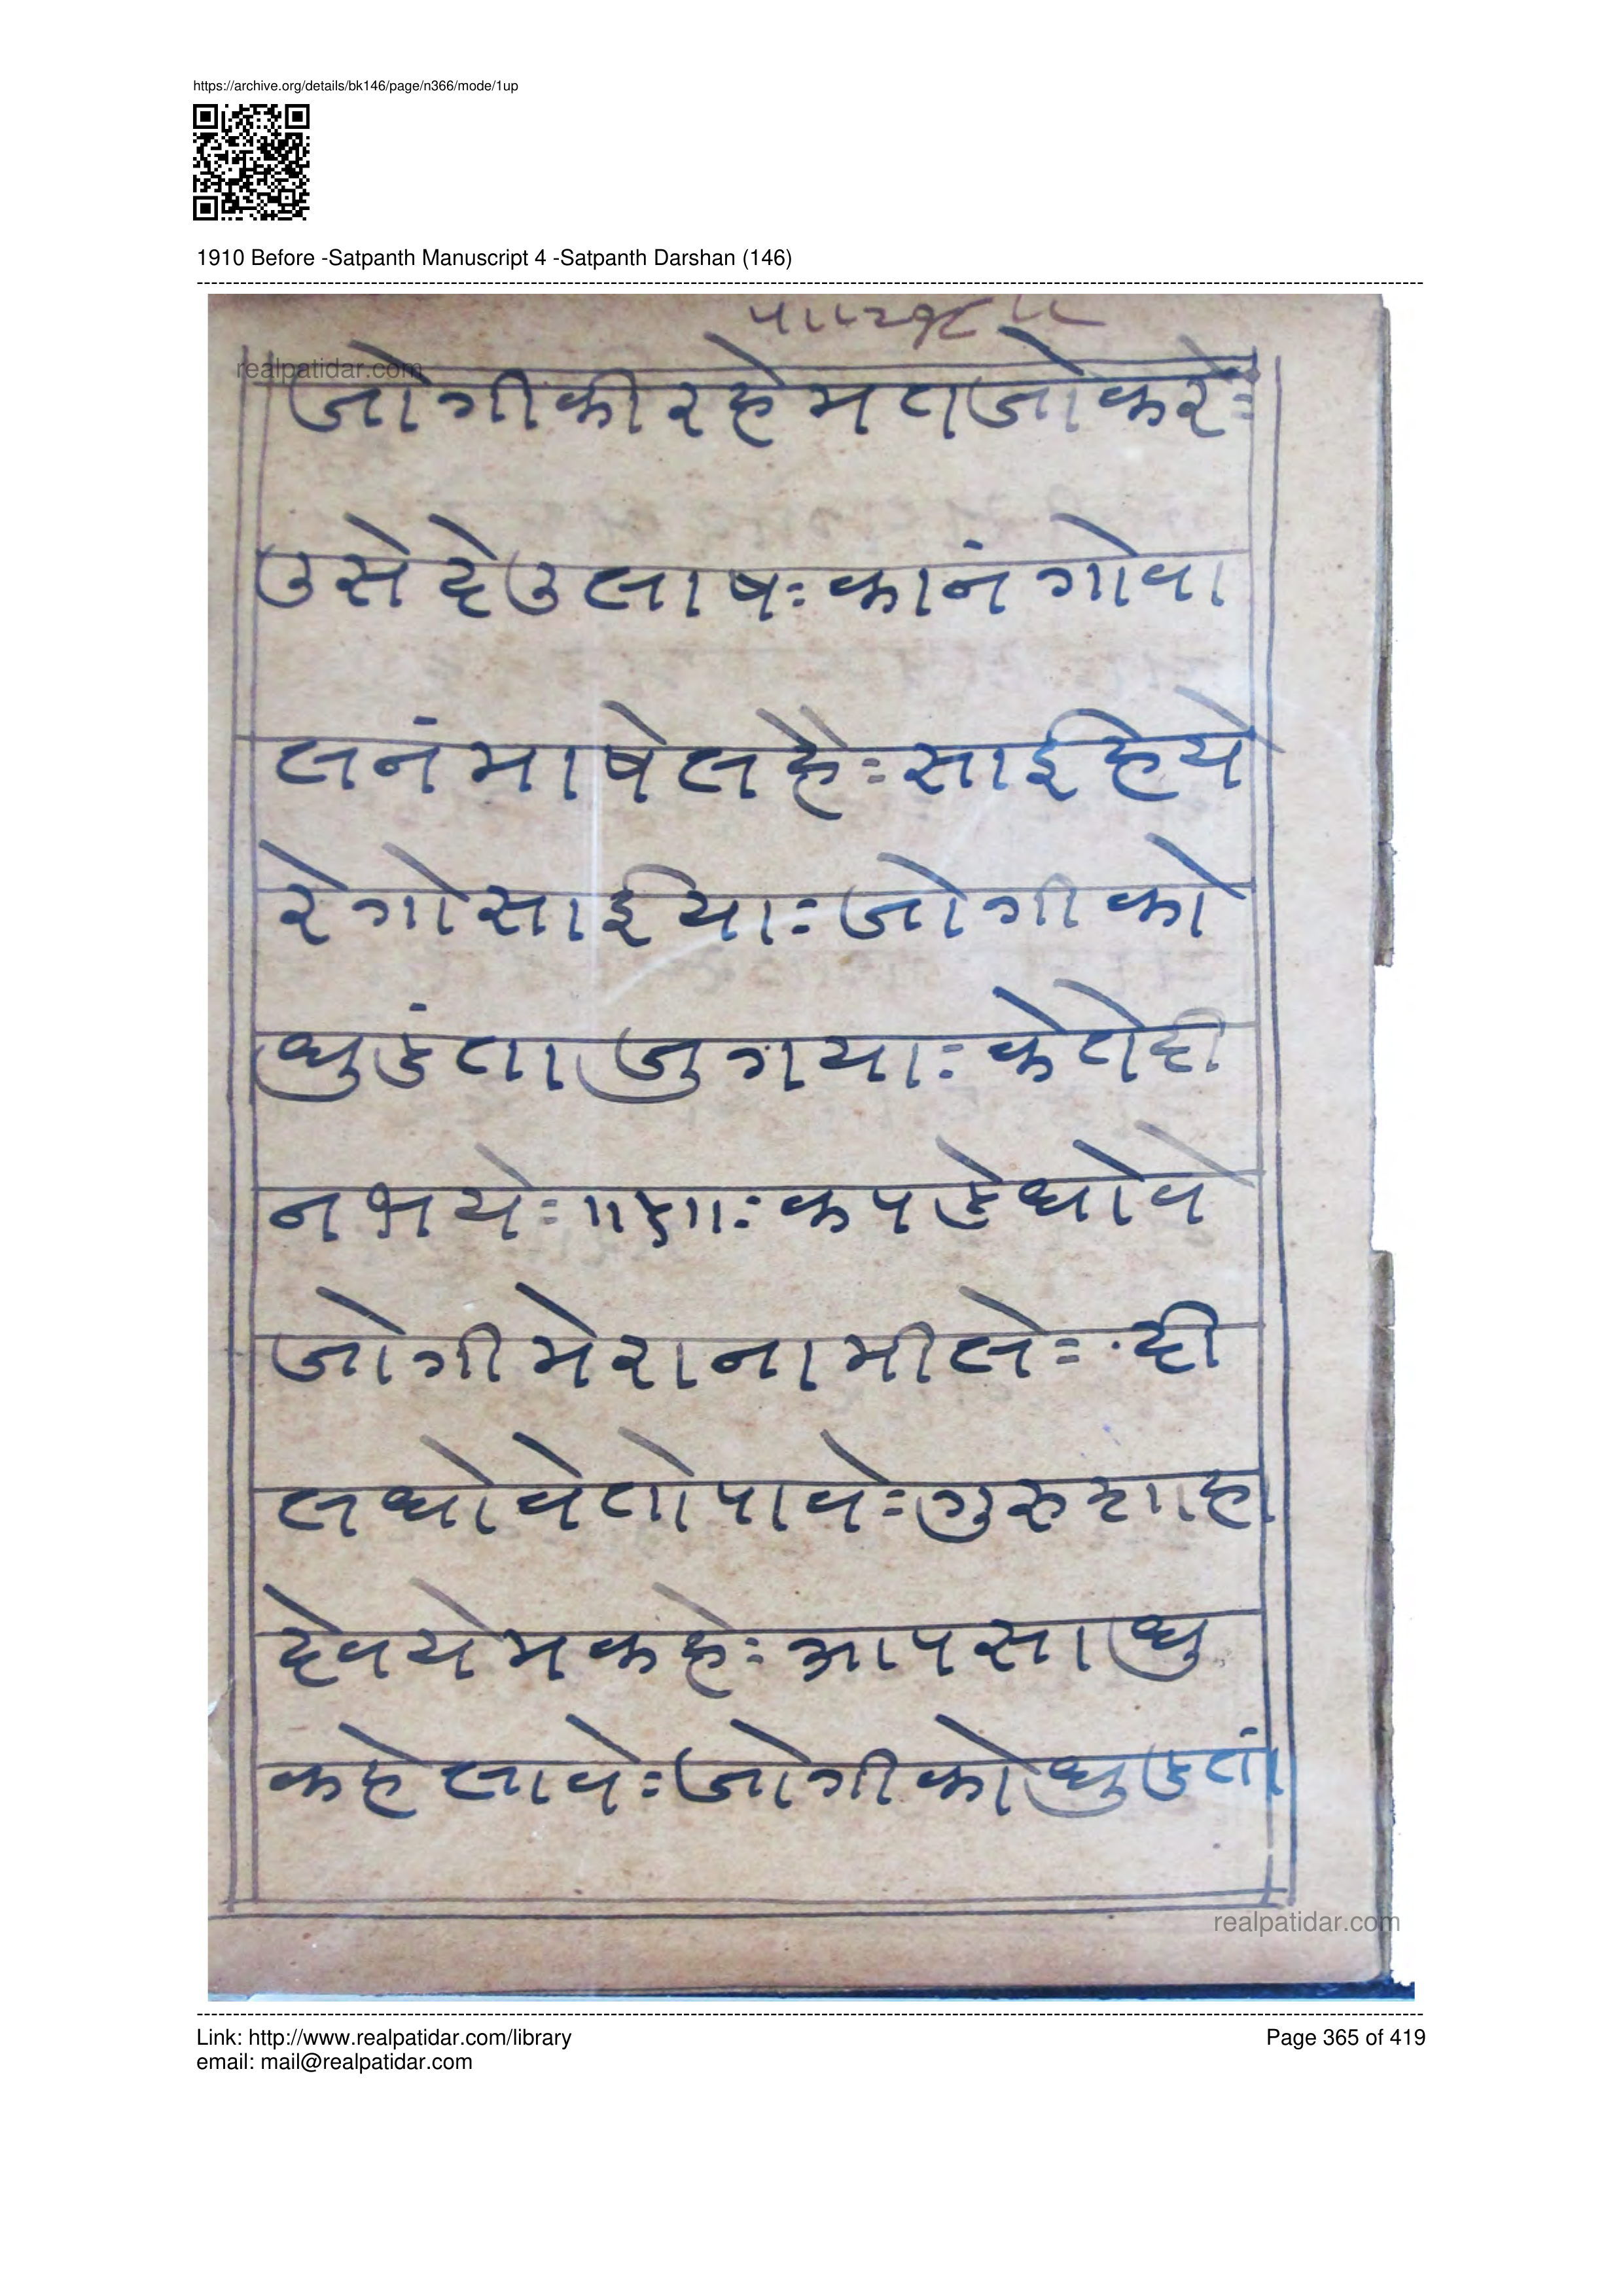 https://archive.org/details/bk146/page/n366/mode/1up
1910 Before -Satpanth Manuscript 4 -Satpanth Darshan (146)
realpatidar.com
जोगीकीरहेमतजोकरेः
उसेदेउलाषःकानंगोवा
लनंमाषेलहैःसाईहेये
रेगोसाईयाःजोगीको
धुडंताजुगयाःकेतेही
नभयेः॥५॥ःकपडेधोवे
जोगीमेरानामीलेःदी
लधोवेतोपावेःगुरुशाहा
देवयेमकहेःआपसाधु
कहेलावेःजोगीकोधुडतां
realpatidar.com
Link: http://www.realpatidar.com/library
Page 365 of 419
email: mail@realpatidar.com